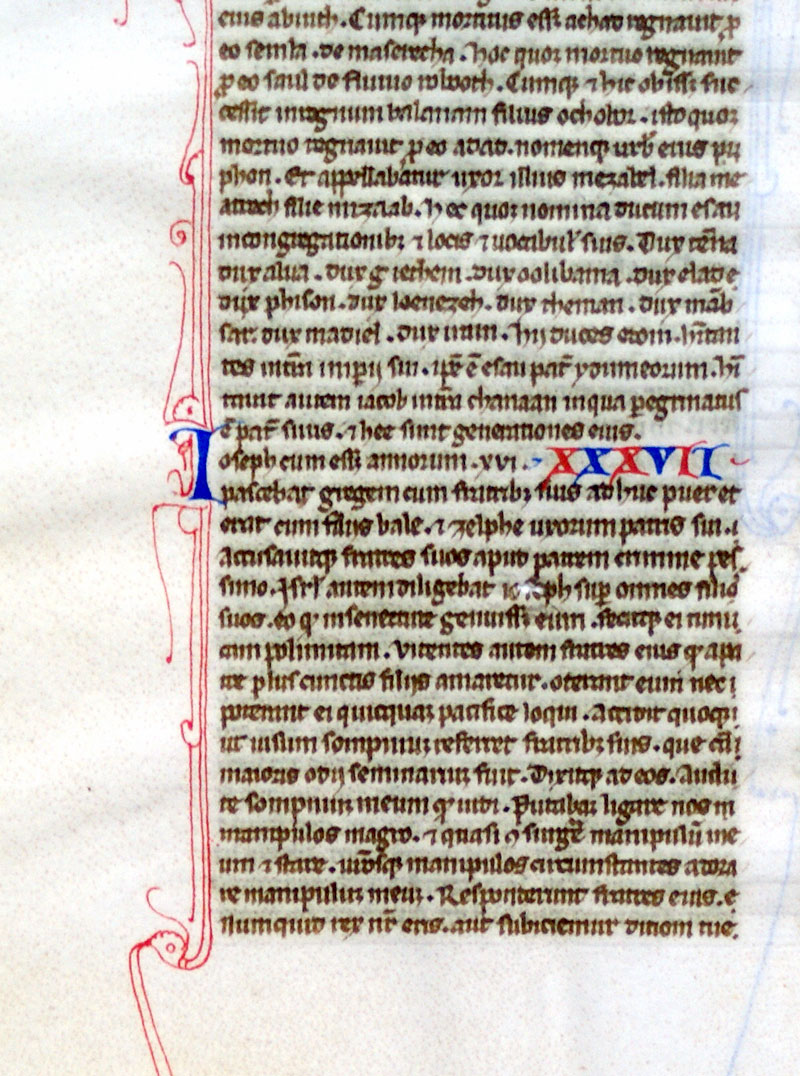 eius abiuth. Cumq; mortuus eēt achad regnauit ꝓ
eo semla. de maserecha. hoc quoꝫ mortuo regnauit
ꝓ eo saul de fluuio roboth. Cumq; ⁊ hic obisset suc
cessit in regnum balanam filius ochobor. isto quoꝫ
mortuo regnauit ꝓ eo adad. nomenq; urbꝭ eius pu
phon. Et appellabatur uxor illius mezabel. filia me
atrech filie mizaab. hec quoꝫ nomina ducum esau
in congregationibꝫ ⁊ locis ⁊ uocabul' suis. Dux tēna
dux alua. dux giethem. dux oolibama. dux elade
dux phison. dux kenezeh. dux theman. dux mab
sar. dux madiel. dux iram. hij duces edom. hītan
tes intrā imꝑij sui. ip̄e ē esau pat̄ ydumeorum. hī
tauit autem iacob intrā chanaan in qua ꝑegrinatus
ē pat̄ suus. ⁊ hec sunt generationes eius.
Ioseph cum eēt annorum .xvi. XXXVII
pascebat gregem cum fratribꝫ suis adhuc puer et
erat cum filiis bale. ⁊ zelphe uxorum patris sui.
accusauitq; fratres suos apud patrem crimine pes
simo. Isrl' autem diligebat ioseph suꝑ omnes filio
suos. eo qꝫ in senectute genuisset eum. fecitq; ei tuni
cam polimitam. Videntes autem fratres eius qꝫ a pa
tre plus cunctis filiis amaretur. oderant eum nec
poterant ei quicquaꝫ pacifice loqui. Accidit quoq;
ut uisum sompniuꝫ referret fratribꝫ suis. que cā
maioris odij seminariuꝫ fuit. Dixitq; ad eos. Audi
te sompniuꝫ meum qꝫ uidi. Putabaꝫ ligare nos
manipulos in agro. ⁊ quasi ꝯsurgē manipulū me
um ⁊ stare. ur̄osq; manipulos circumstantes adora
re manipuluꝫ meuꝫ. Responderunt fratres eius.
Numquid rex nr̄ eris. aut subiciemur dicioni tue.